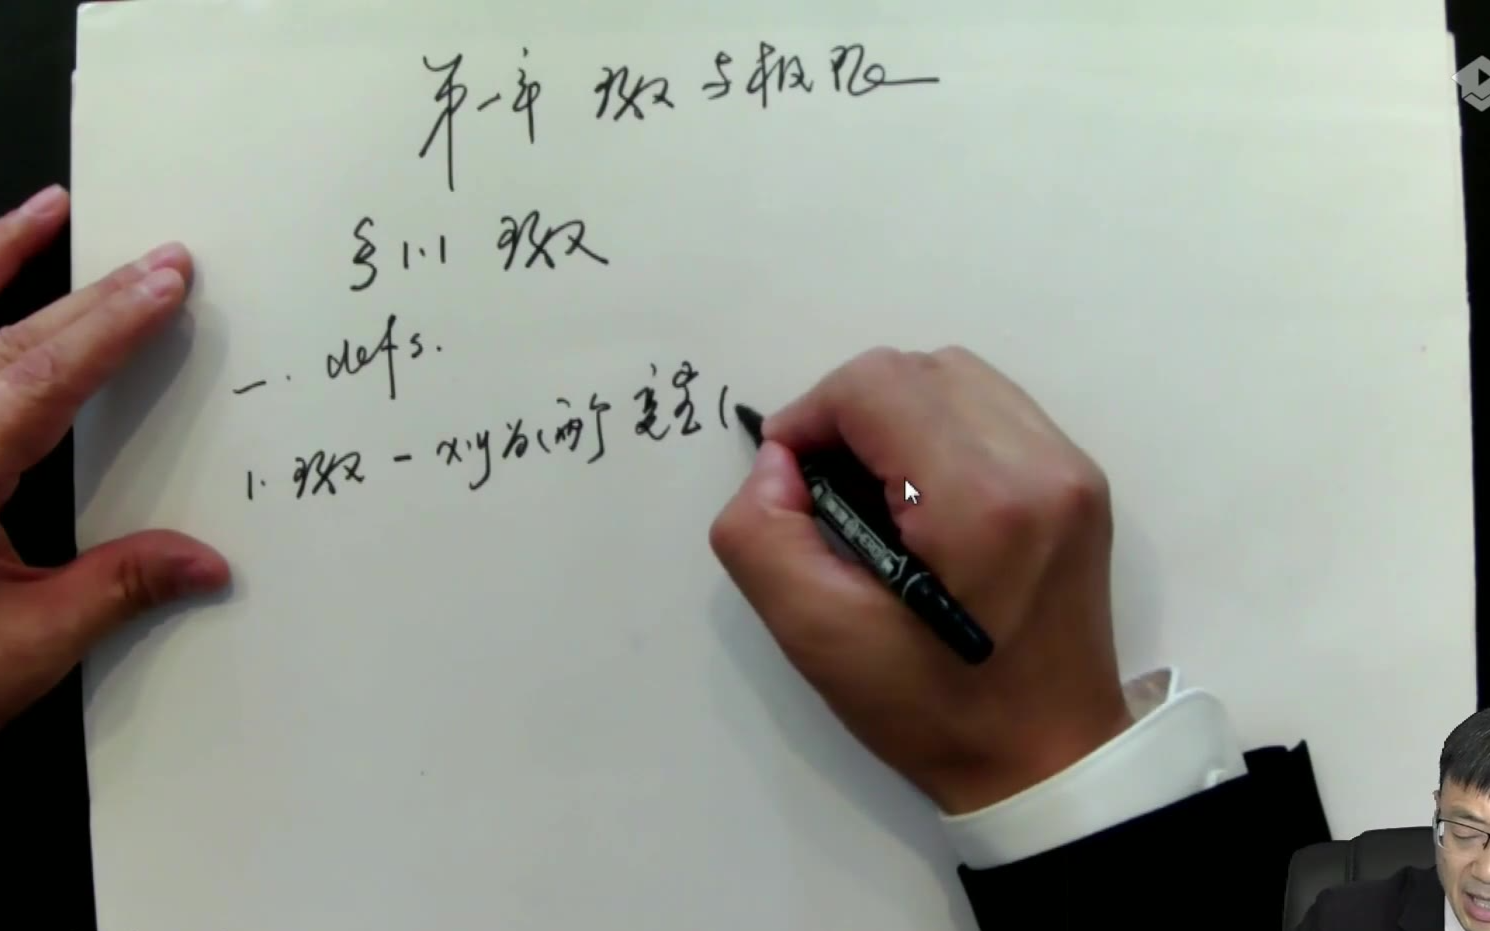 第一章 函数与极限
§1.1 函数
一. defs.
1. 函数 - x,y为两个变量(